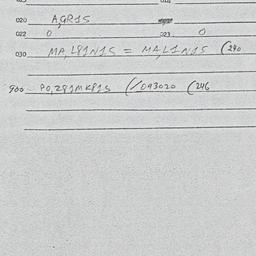 020 A,GR15
022 0 023 0
030 MA,L91N15 = MA,L1N15 (240
900 P0,291MK815 (/093020 (246